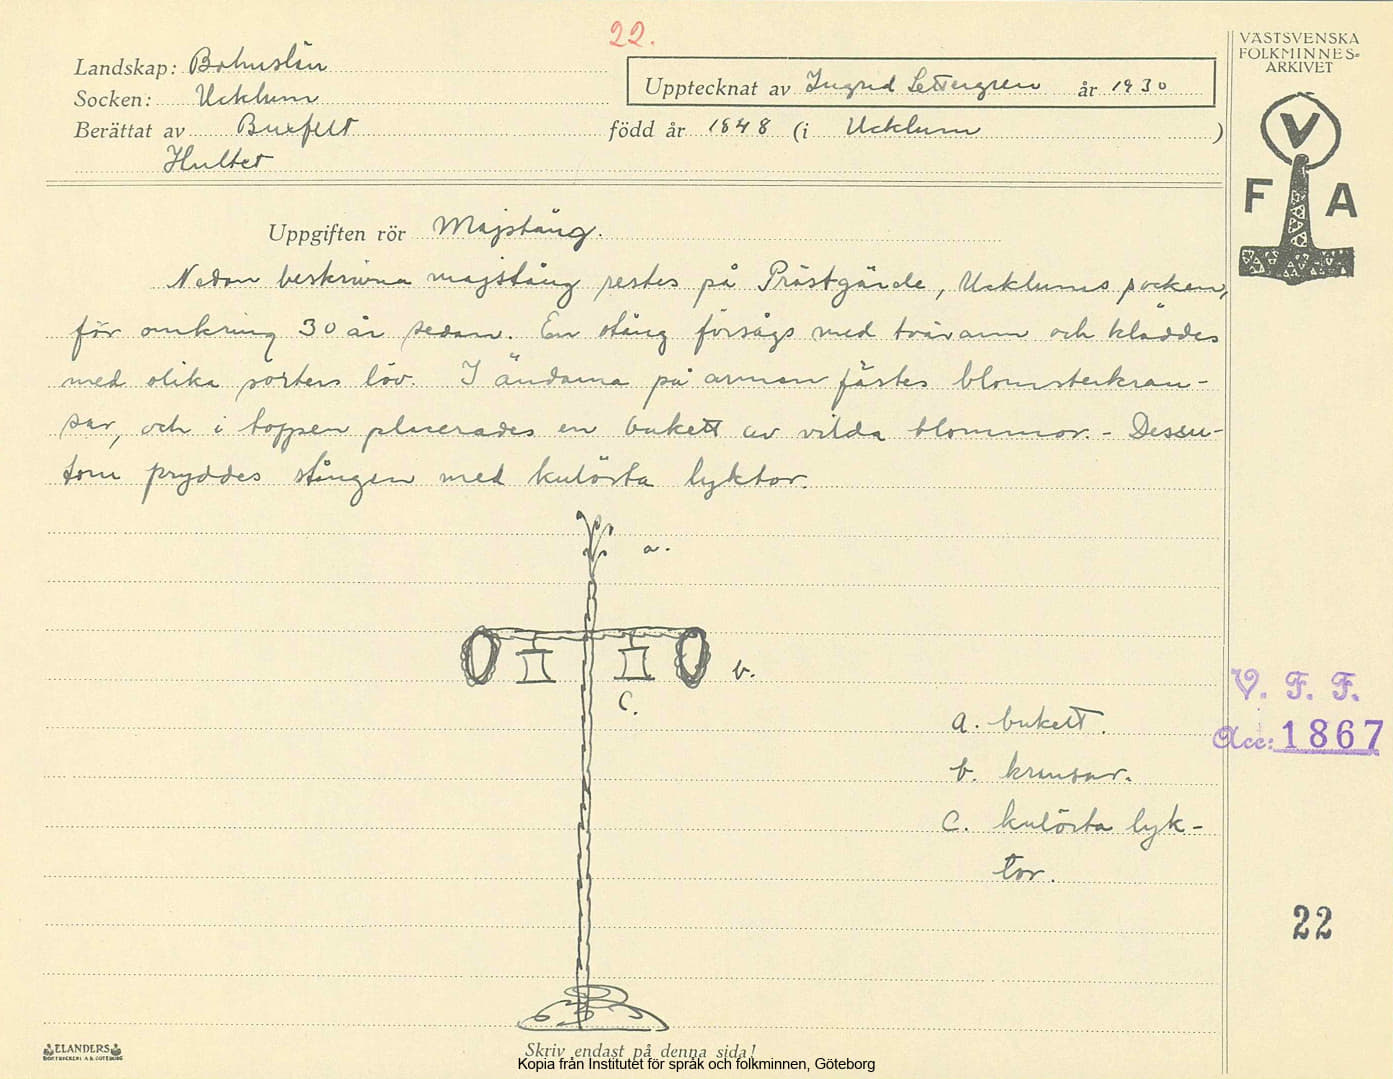 22.
VÄSTSVENSKA
FOLKMINNES=
ARKIVET
Landskap: Bohuslän
Upptecknat av Ingrid Settergren år 1930
Socken: Ucklum
Berättat av Buxfelt född år 1848 (i Ucklum )
Hultet
V
F A
Uppgiften rör Majstång.
Nedan beskrivna majstång restes på Prästgärde, Ucklums socken,
för omkring 30 år sedan. En stång försågs med tvärarm och kläddes
med olika sorters löv. I ändarna på armen fästes blomsterkran-
sar, och i toppen placerades en bukett av vilda blommor. - Dessu-
tom pryddes stången med kulörta lyktor.
a.
b.
C.
V. F. F.
Acc: 1867
a. bukett.
b. kransar.
C. kulörta lyk-
tor.
22
ELANDERS
BOKTRYCKERI A.B. GÖTEBORG
Skriv endast på denna sida!
Kopia från Institutet för språk och folkminnen, Göteborg